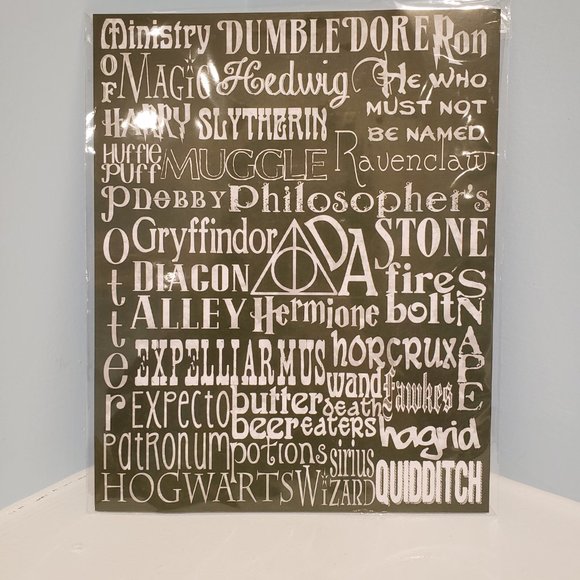 Ministry DUMBLEDORE Ron
OF MAGIC Hedwig HE WHO
MUST NOT
BE NAMED
HARRY SLYTHERIN
Huffle
Puff MUGGLE Ravenclaw
Potter DOBBY Philosopher's
STONE
Gryffindor DA
DIAGON
ALLEY Hermione fire
bolt SNAPE
EXPELLIARMUS horcrux
wand Fawkes
EXPECTO butter
beer death
eaters hagrid
Patronum potions sirius
HOGWARTS WIZARD QUIDDITCH